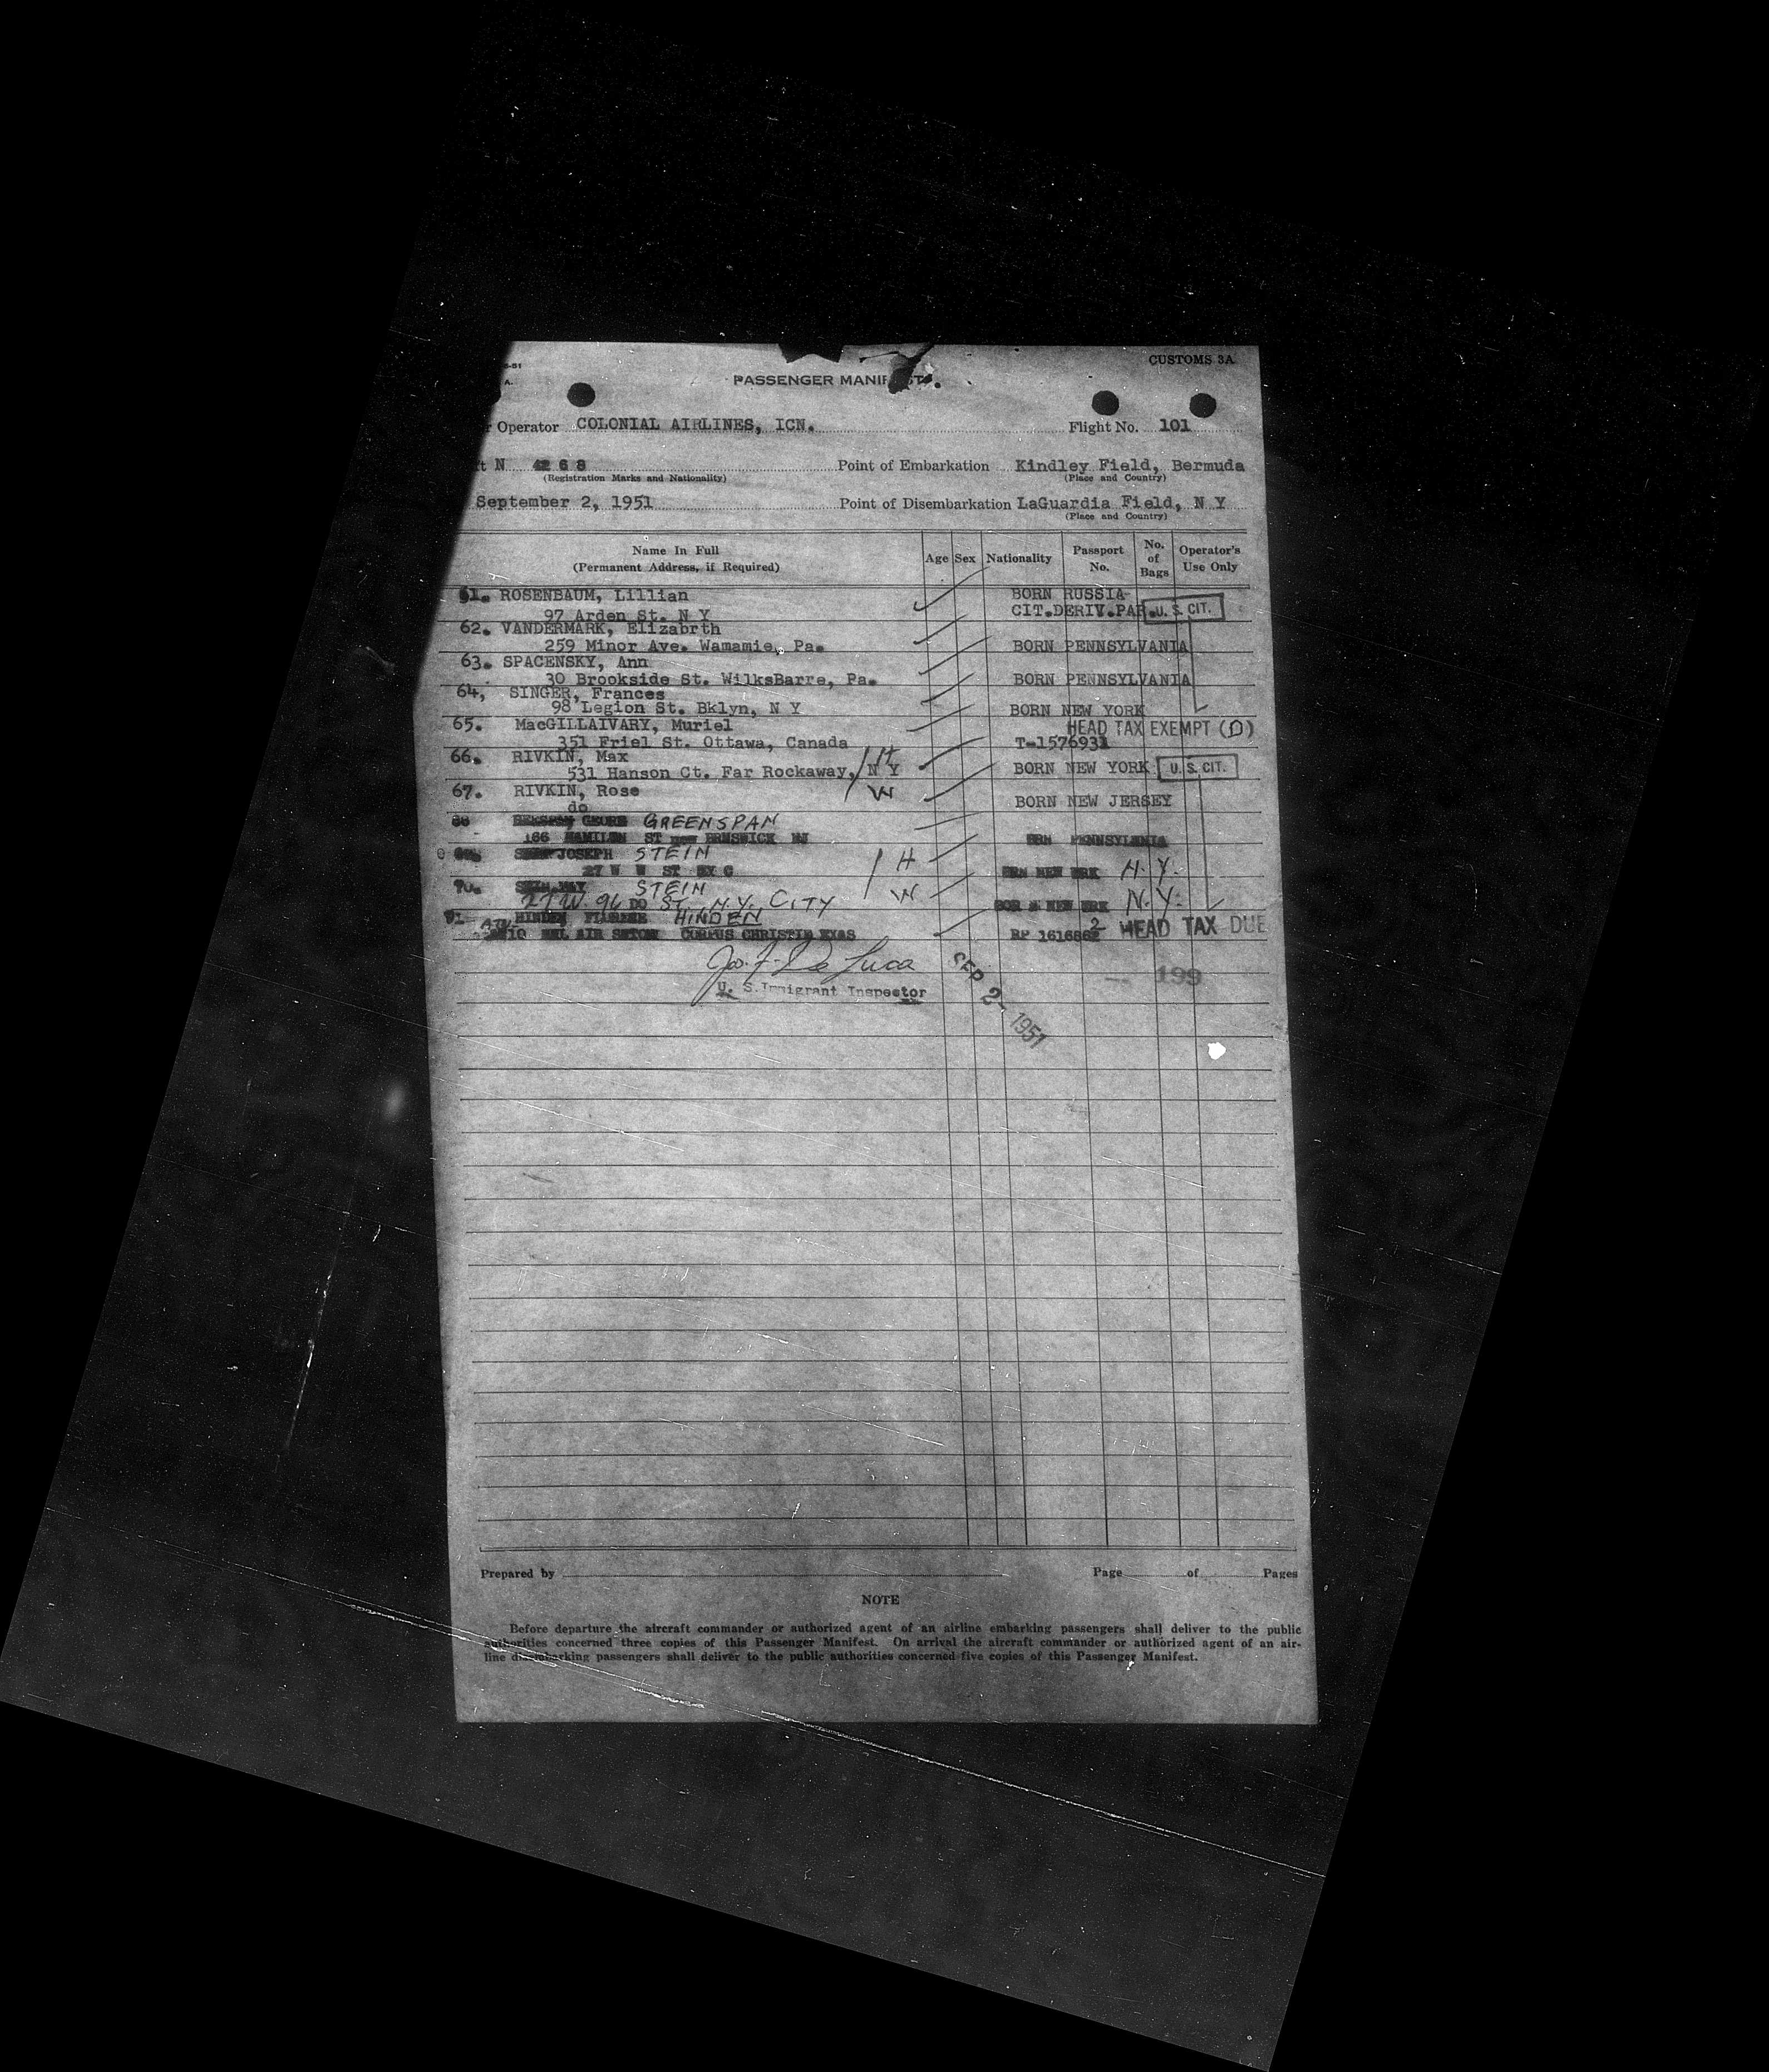 CUSTOMS 3A
PASSENGER MANIF
Operator COLONIAL AIRLINES, ICN. Flight No. 101
N 4268 Point of Embarkation Kindley Field, Bermuda
(Registration Marks and Nationality) (Place and Country)
September 2, 1951 Point of Disembarkation LaGuardia Field, N Y
(Place and Country)
Name In Full
(Permanent Address, if Required)
Age Sex Nationality Passport No. No. of Bags Operator's Use Only
61. ROSENBAUM, Lillian BORN RUSSIA-
97 Arden St. N Y CIT.DERIV.PAR. U. S. CIT.
62. VANDERMARK, Elizabrth
259 Minor Ave. Wamamie, Pa. BORN PENNSYLVANIA
63. SPACENSKY, Ann
30 Brookside St. WilksBarre, Pa. BORN PENNSYLVANIA
64, SINGER, Frances
98 Legion St. Bklyn, N Y BORN NEW YORK
65. MacGILLAIVARY, Muriel HEAD TAX EXEMPT (D)
351 Friel St. Ottawa, Canada T-1576931
66. RIVKIN, Max H
531 Hanson Ct. Far Rockaway, N Y BORN NEW YORK U. S. CIT.
67. RIVKIN, Rose W
do BORN NEW JERSEY
68 GREENSPAN
166 ST BRNSWICK NJ PENNSYLVANIA
JOSEPH STEIN H
27 W ST NEW N.Y.
70. STEIN W
27 W. 96 DO ST. N.Y. CITY NEW N.Y.
HINDEN HINDEN
10 AIR CORPUS CHRISTI RP 1616862 2 HEAD TAX DUE
Jos. F. De Luca
U. S. Immigrant Inspector
SEP 2- 1951
199
Prepared by Page of Pages
NOTE
Before departure the aircraft commander or authorized agent of an airline embarking passengers shall deliver to the public
authorities concerned three copies of this Passenger Manifest. On arrival the aircraft commander or authorized agent of an air-
line disembarking passengers shall deliver to the public authorities concerned five copies of this Passenger Manifest.